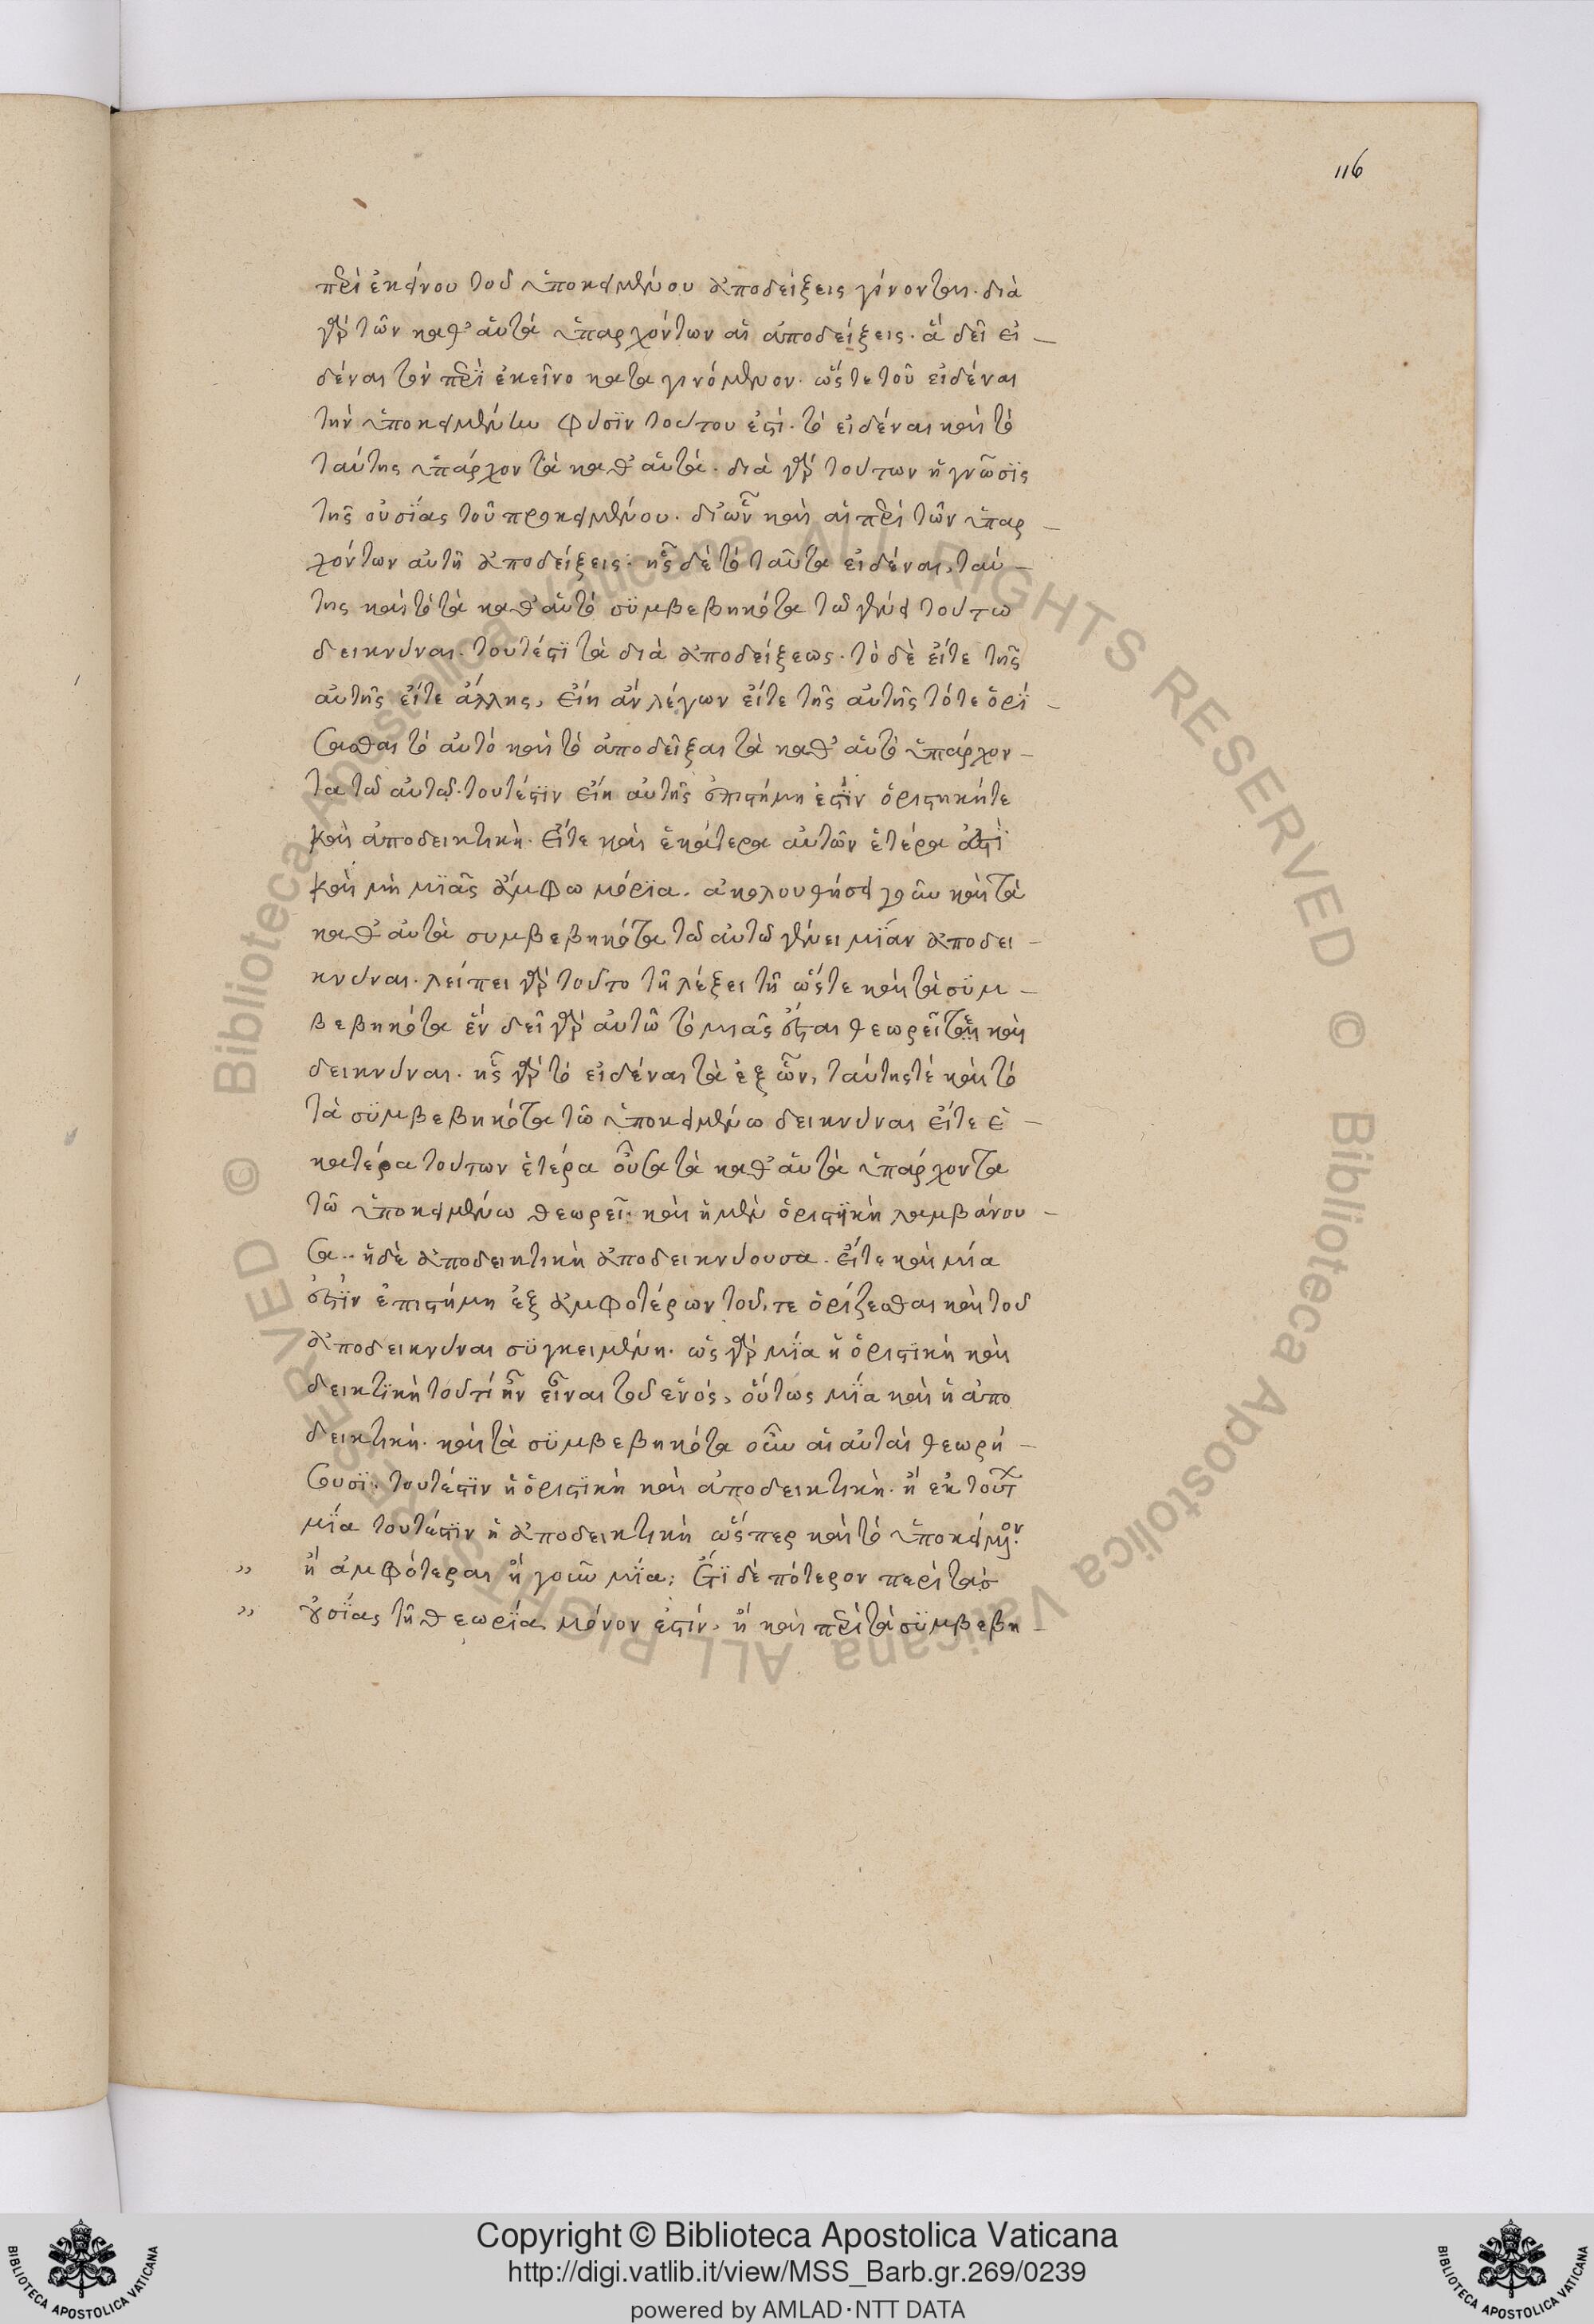 116
περὶ ἐκείνου τοῦ ὑποκειμένου ἀποδείξεις γίνονται. διὰ
γὰρ τῶν καθ' αὑτὰ ὑπαρχόντων αἱ ἀποδείξεις. ἃ δεῖ εἰ –
δέναι τὸν περὶ ἐκεῖνο καταγινόμενον. ὥστε τοῦ εἰδέναι
τὴν ὑποκειμένην φύσϊν τούτου ἐστὶ. τὸ εἰδέναι καὶ τὸ
ταύτης ὑπάρχοντὰ καθ' αὑτά. διὰ γὰρ τούτων ἡ γνῶσϊς
τῆς οὐσΐας τοῦ προκειμένου. δι' ὧν καὶ αἱ περὶ τῶν ὑπαρ –
χόντων αὐτῆ ἀποδείξεις. ἧς δὲ τὸ ταῦτα εἰδέναι, ταύ –
της καὶ τὸ τὰ καθ' αὑτὸ σϋμβεβηκότα τῶ γένει τούτω
δεικνύναι. τουτέστϊ τὰ διὰ ἀποδείξεως. τὸ δὲ εἴτε τῆς
αὐτῆς εἴτε ἄλλης, εἴη ἂν λέγων εἴτε τῆς αὐτῆς τότε ὁρΐ –
σασθαι τὸ αὐτὸ καὶ τὸ ἀποδεῖξαι τὰ καθ' αὑτὸ ὑπάρχον –
τα τῶ αὐτῶ. τουτέστϊν εἴη αὐτῆς ἐπιστήμη ἐστϊν ὁριστηκήτε
καὶ ἀποδεικτικὴ. εἴτε καὶ ἑκάτερα αὐτῶν ἑτέρα ἐστϊ
καὶ μὴ μϊᾶς ἄμφω μόρϊα. ἀκολουθήσει γοῦν καὶ τὰ
καθ' αὑτὰ συμβεβηκότα τῶ αὐτῶ γένει μΐαν ἀποδει –
κνύναι. λείπει γὰρ τοῦτο τῆ λέξει τῆ ὥστε καὶ τὰ σϋμ –
βεβηκότα ἓν δεῖ γὰρ αὐτῶ τὸ μιᾶς ἔσται θεωρεῖται καὶ
δεικνύναι. ἧς γὰρ τὸ εἰδέναι τὰ ἐξ ὧν, ταύτης τέ καὶ τὸ
τὰ σϋμβεβηκότα τῶ ὑποκειμένω δεικνύναι εἴτε ἑ –
κατέρα τούτων ἑτέρα οὖσα τὰ καθ' αὑτὰ ὑπάρχοντα
τῶ ὑποκειμένω θεωρεῖ. καὶ ἡ μὲν ὁριστϊκὴ λαμβάνου –
σα. ἡ δὲ ἀποδεικτικὴ ἀποδεικνύουσα. εἴτε καὶ μία
ἐστϊν ἐπιστήμη ἐξ ἀμφοτέρων τοῦ, τε ὁρίζεσθαι καὶ τοῦ
ἀποδεικνύναι σϋγκειμένη. ὡς γὰρ μΐα ἡ ὁριστϊκὴ καὶ
δεικτϊκὴ τοῦ τί ἦν εἶναι τοῦ ἑνός, οὕτως μΐα καὶ ἡ ἀπο
δεικτικὴ. καὶ τὰ σϋμβεβηκότα οὖν αἱ αὐταὶ θεωρή –
σουσϊ. τουτέστϊν ἡ ὁριστϊκὴ καὶ ἀποδεικτικὴ. ἢ ἐκ τούτ
μΐα τουτέστϊν ἡ ἀποδεικτικὴ ὥσπερ καὶ τὸ ὑποκείμενον.
,, ἢ ἀμφότεραι ἢ γοῦν μΐα; Ἔτϊ δὲ πότερον περὶ τὰσ
,, οὐσΐας τῆ θεωρΐα μόνον ἐστίν, ἢ καὶ περὶ τὰ σϋμβεβη –
Copyright © Biblioteca Apostolica Vaticana
http://digi.vatlib.it/view/MSS_Barb.gr.269/0239
powered by AMLAD·NTT DATA